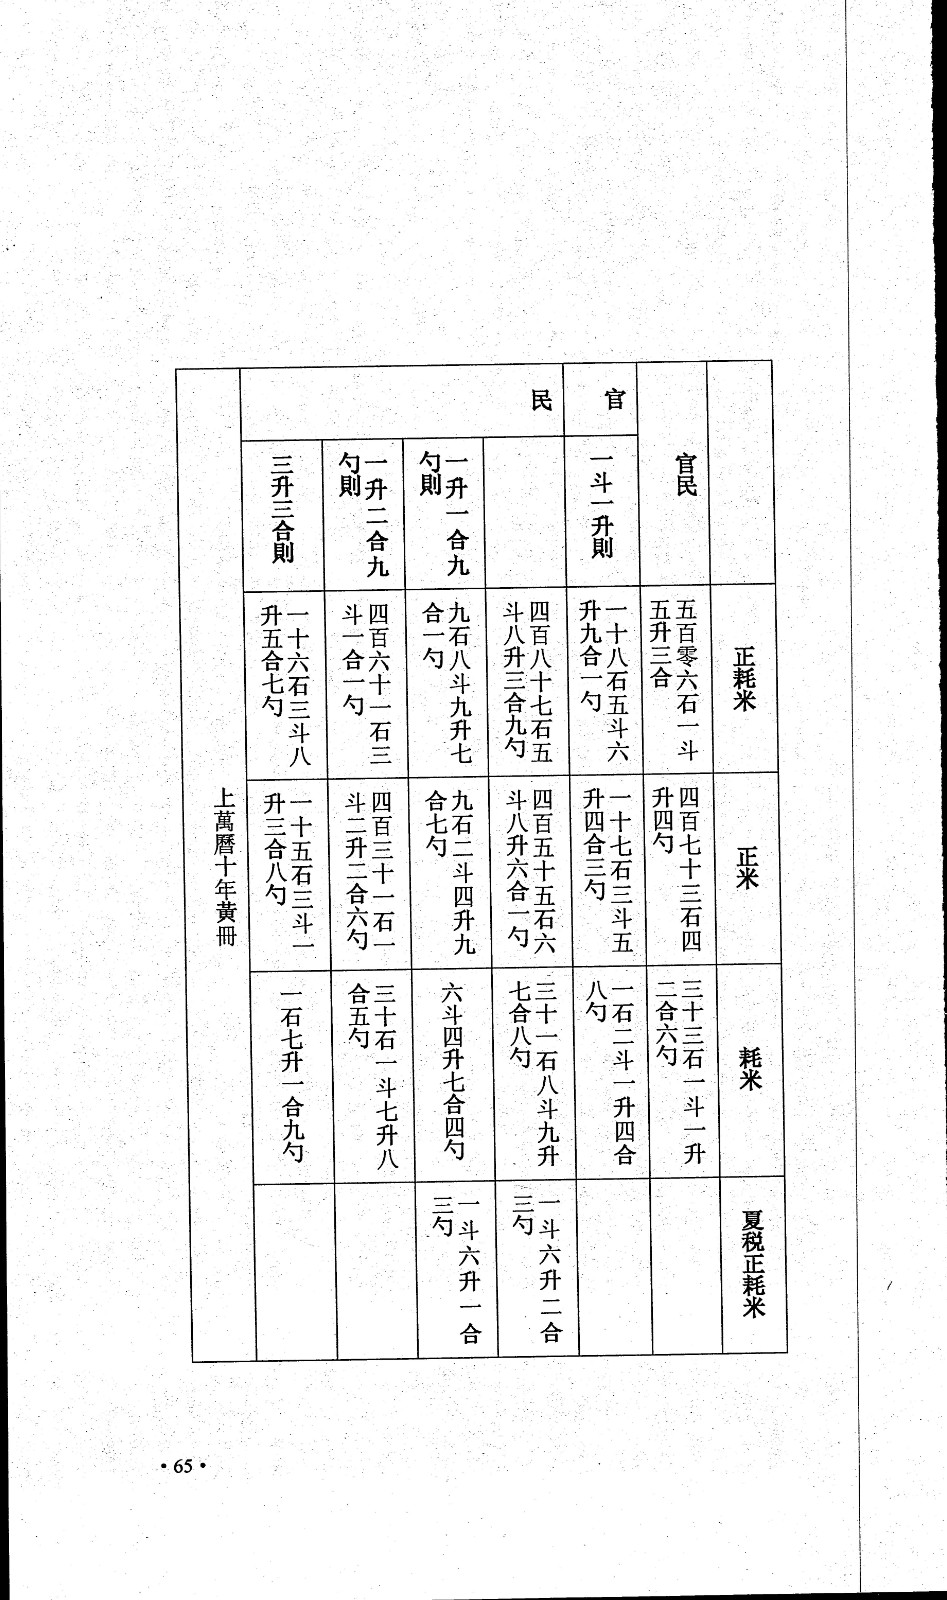 正耗米
正米
耗米
夏税正耗米
官民
五百零六石一斗
五升三合
四百七十三石四
升四勺
三十三石一斗一升
二合六勺
官
一斗一升則
一十八石五斗六
升九合一勺
一十七石三斗五
升四合三勺
一石二斗一升四合
八勺
民
四百八十七石五
斗八升三合九勺
四百五十五石六
斗八升六合一勺
三十一石八斗九升
七合八勺
一斗六升二合
三勺
一升一合九
勺則
九石八斗九升七
合一勺
九石二斗四升九
合七勺
六斗四升七合四勺
一斗六升一合
三勺
一升二合九
勺則
四百六十一石三
斗一合一勺
四百三十一石一
斗二升二合六勺
三十石一斗七升八
合五勺
三升三合則
一十六石三斗八
升五合七勺
一十五石三斗一
升三合八勺
一石七升一合九勺
上萬曆十年黃冊
·65·